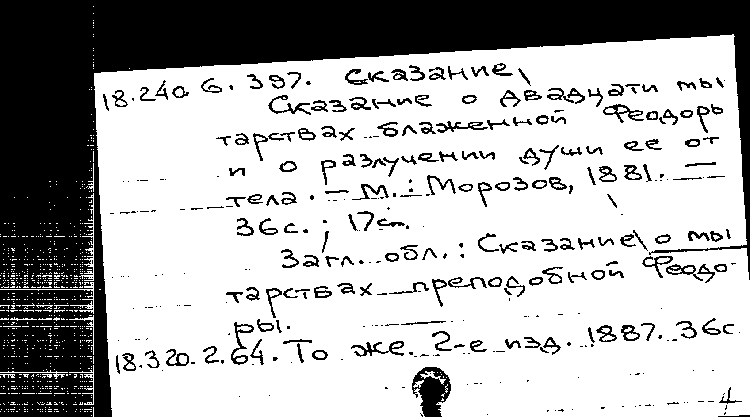 18.240 6.397. Сказание\
Сказание о двадцати мы
тарствах блаженной Феодоры
и о разлучении души ее от
тела. — М.: Морозов, 1881. —
36с.; 17см.
Загл. обл.: Сказание\ о мы
тарствах преподобной Феодо-
ры.
18.320.2.64. То же. 2-е изд. 1887. 36с
4